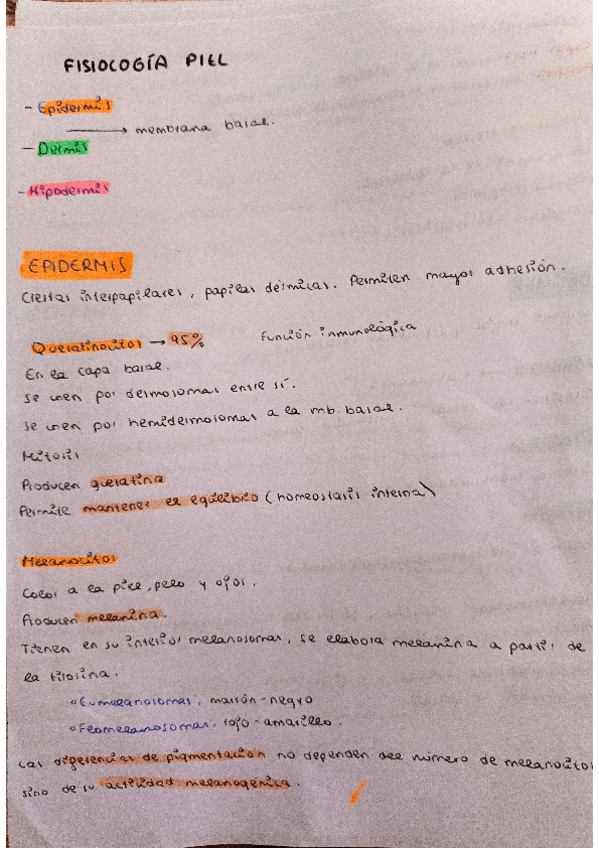 FISIOLOGÍA PIEL
- Epidermis
→ membrana basal.
- Dermis
- Hipodermis
EPIDERMIS
Crestas interpapilares, papilas dérmicas. Permiten mayor adhesión.
Queratinocitos → 95% Función inmunológica
En la capa basal.
Se unen por desmosomas entre sí.
Se unen por hemidesmosomas a la mb. basal.
Mitosis
Producen queratina
Permite mantener el equilibrio (homeostasis interna)
Melanocitos
Color a la piel, pelo y ojos.
Producen melanina.
Tienen en su interior melanosomas, se elabora melanina a partir de
la tirosina.
• Eumelanosomas: marrón-negro
• Feomelanosomas: rojo-amarillo.
Las diferencias de pigmentación no dependen del número de melanocitos
sino de su actividad melanogénica.